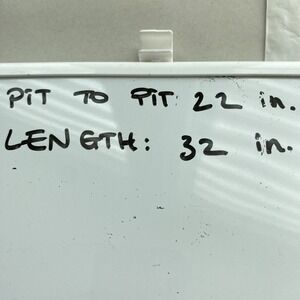 PiT TO PiT: 22 in.
LENGTH: 32 in.